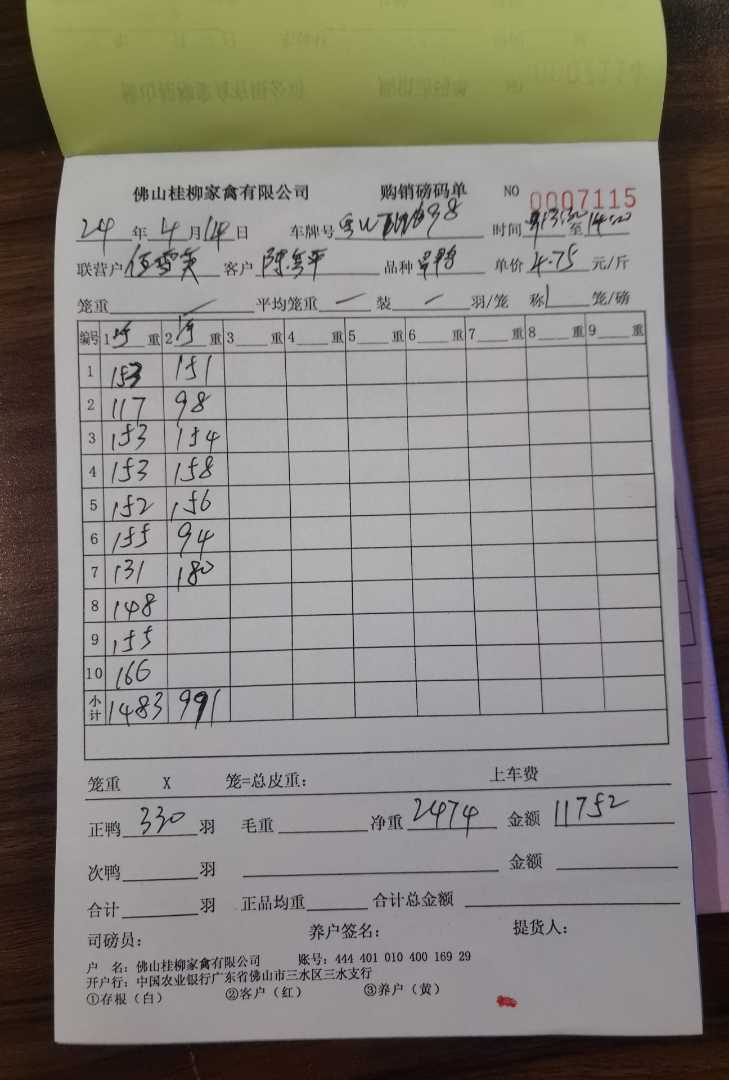 佛山桂柳家禽有限公司 购销磅码单 NO 0007115
24 年 4 月 14 日 车牌号 698 时间 至
联营户 伍雪英 客户 陈 平 品种 单价 4.75 元/斤
笼重 — 平均笼重 — 装 — 羽/笼 称 1 笼/磅
编号 1 重 2 重 3 重 4 重 5 重 6 重 7 重 8 重 9 重
1 153 151
2 117 98
3 153 154
4 153 158
5 152 156
6 155 94
7 131 180
8 148
9 155
10 166
小计 1483 991
笼重 X 笼=总皮重: 上车费
正鸭 330 羽 毛重 净重 2474 金额 11752
次鸭 羽 金额
合计 羽 正品均重 合计总金额
司磅员: 养户签名: 提货人:
户 名: 佛山桂柳家禽有限公司 账号: 444 401 010 400 169 29
开户行: 中国农业银行广东省佛山市三水区三水支行
①存根(白) ②客户(红) ③养户(黄)